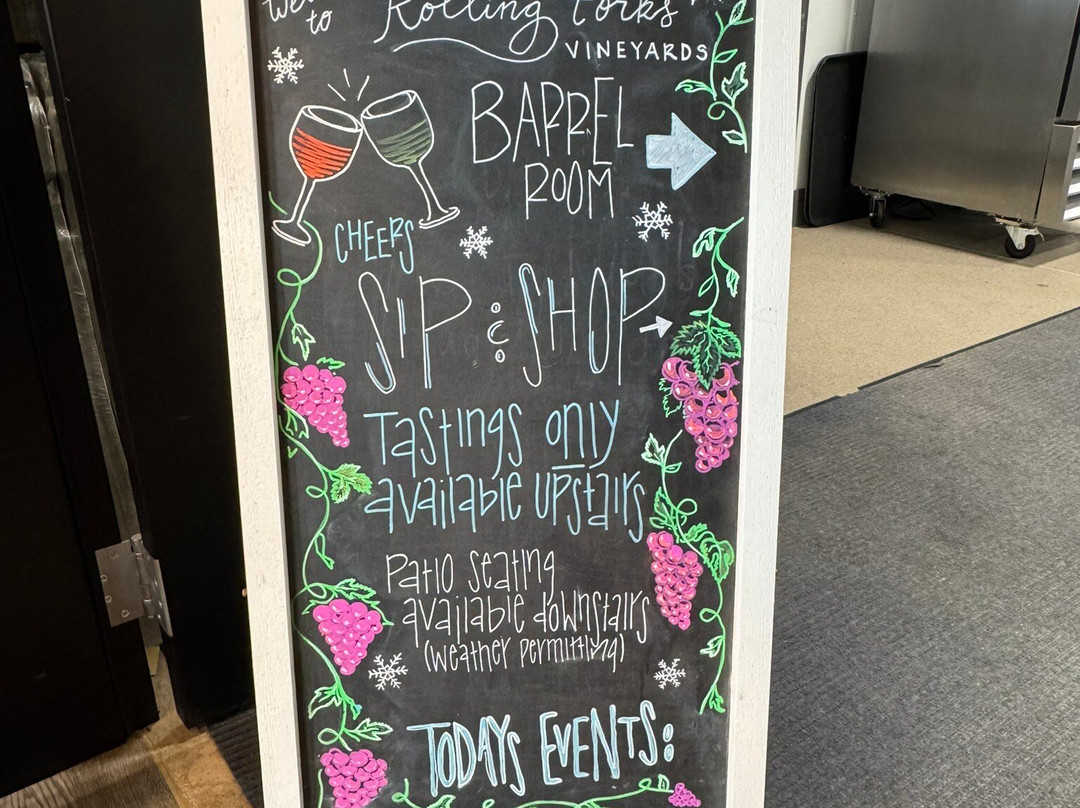 to
Rolling Forks
VINEYARDS
BARREL
ROOM
CHEERS
SIP & SHOP
Tastings only
available upstairs
Patio seating
available downstairs
(weather permitting)
TODAYS EVENTS: